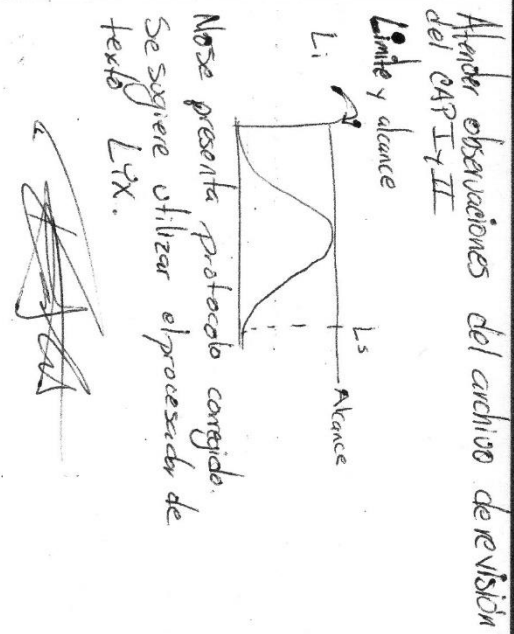 Atender observaciones del archivo de revisión
del CAP I y II
Limite y alcance
Li
Ls
Alcance
No se presenta protocolo corregido.
Se sugiere utilizar el procesador de
texto LYX.